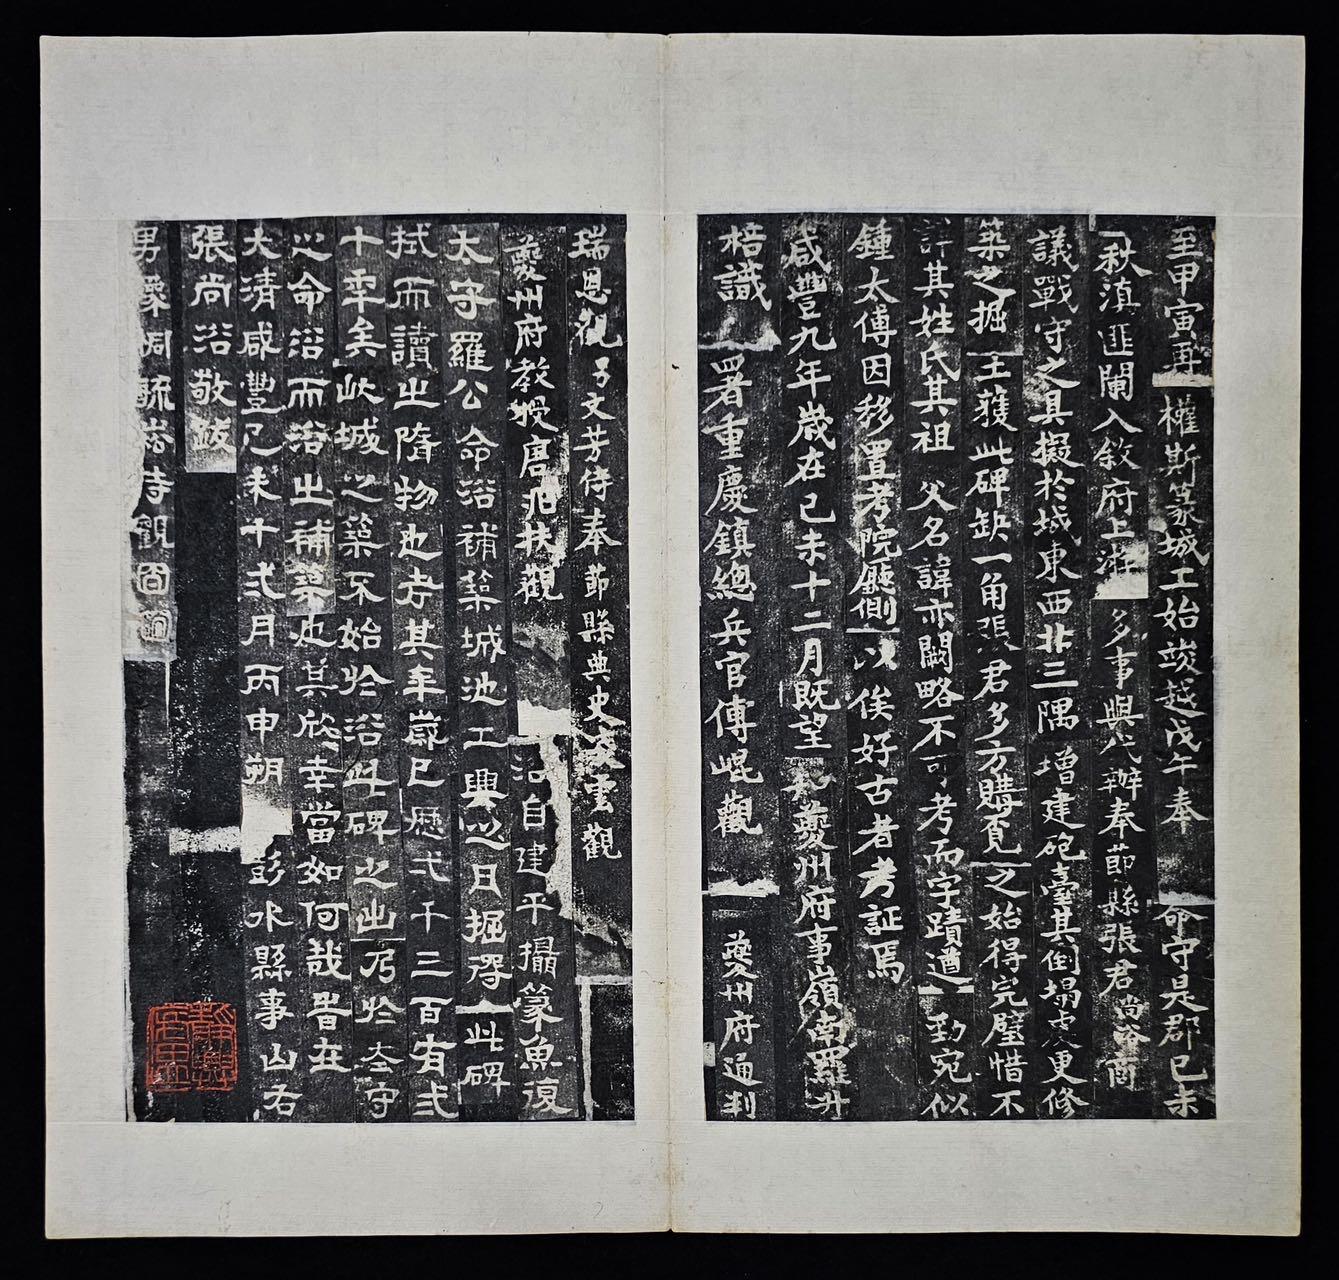 至甲寅再權斯篆城工始竣越戊午奉命守是郡己未
秋滇匪闌入敘府上游多事與代辦奉節縣張君尚溶商
議戰守之具擬於城東西北三隅增建砲臺其倒塌處更修
築之掘土獲此碑缺一角張君多方購覓之始得完璧惜不
詳其姓氏其祖父名諱亦闕略不可考而字蹟遒勁宛似
鍾太傅因移置考院廳側以俟好古者考証焉
咸豐九年歲在己未十二月既望知夔州府事嶺南羅升
棓識署重慶鎮總兵官傅崐觀夔州府通判
瑞恩觀子文芳侍奉節縣典史雲觀
夔州府教授唐兆扶觀溶自建平攝篆魚復
太守羅公命溶補築城池工興之日掘得此碑
拭而讀之隋物也考其年歲已歷弍千三百有弍
十秊矣此城之築不始於溶此碑之出乃於太守
之命溶而溶之補築也其欣幸當如何哉書在
大清咸豐己未十弍月丙申朔彭水縣事山右
張尚溶敬跋
男豫毓崧侍觀